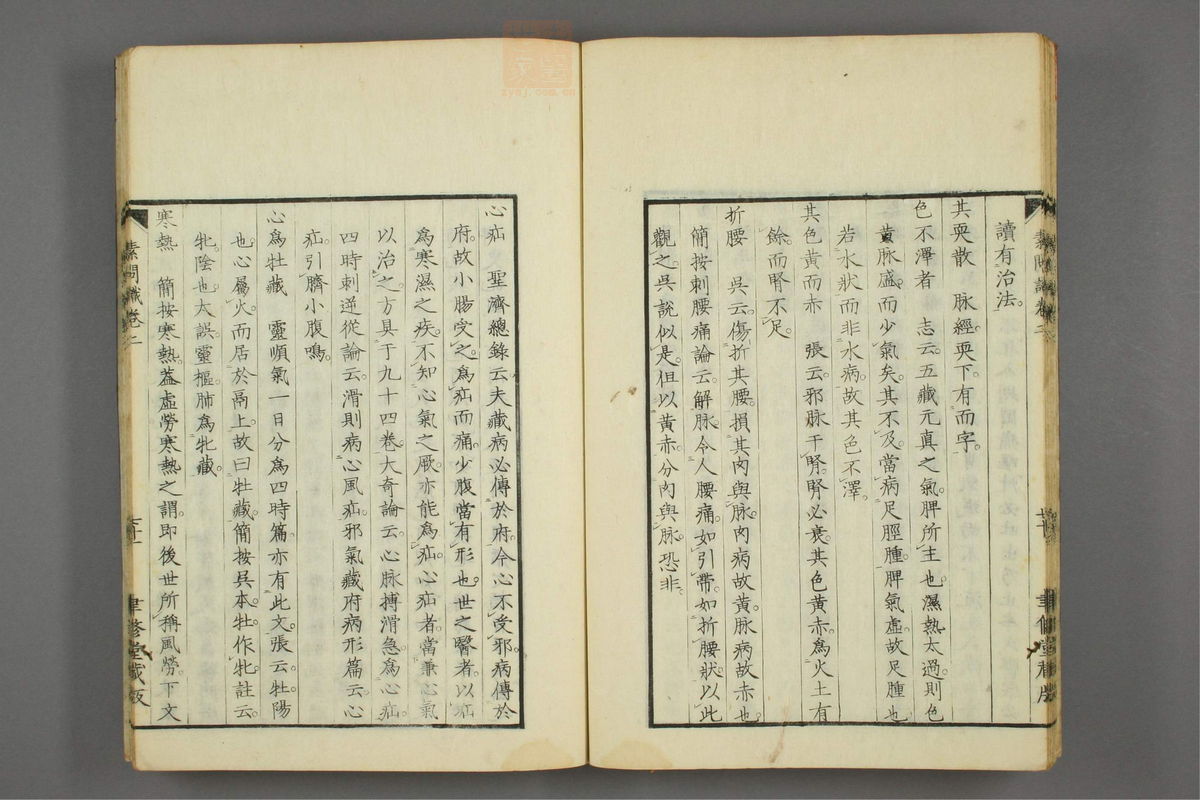 讀有治法。
其耎散　脉經。耎下。有而字。
色不澤者　志云。五藏元真之氣。脾所主也。濕熱太過。則色
黄脉盛。而少氣矣。其不及。當病足脛腫。脾氣虛。故足腫也
若水狀而非水病。故其色不澤。
其色黄而赤　張云。邪脉干腎。腎必衰。其色黄赤。爲火土有
餘。而腎不足。
折腰　吳云。傷折其腰。損其肉與脉。肉病故黄。脉病故赤也
簡按刺腰痛論云。解脉。令人腰痛。如引帶。如折腰狀。以此
觀之。吳說似是。但以黄赤。分肉與脉。恐非。
素問識卷二
聿修堂藏版
心疝　聖濟總錄云。夫藏病必傳於府。今心不受邪。病傳於
府。故小腸受之。爲疝而痛。少腹當有形也。世之醫者。以疝
爲寒濕之疾。不知心氣之厥。亦能爲疝。心疝者。當兼心氣
以治之。方具于九十四卷。大奇論云。心脉搏滑急。爲心疝。
四時刺逆從論云。滑則病心風疝。邪氣藏府病形篇云。心
疝。引臍小腹鳴。
心爲牡藏　靈順氣一日分爲四時篇。亦有此文。張云。牡陽
也。心屬火。而居於鬲上。故曰牡藏。簡按吳本。牡作牝。註云。
牝。陰也。大誤。靈樞。肺爲牝藏。
寒熱　簡按寒熱。蓋虛勞寒熱之謂。即後世所稱風勞。下文
素問識卷二
聿修堂藏版